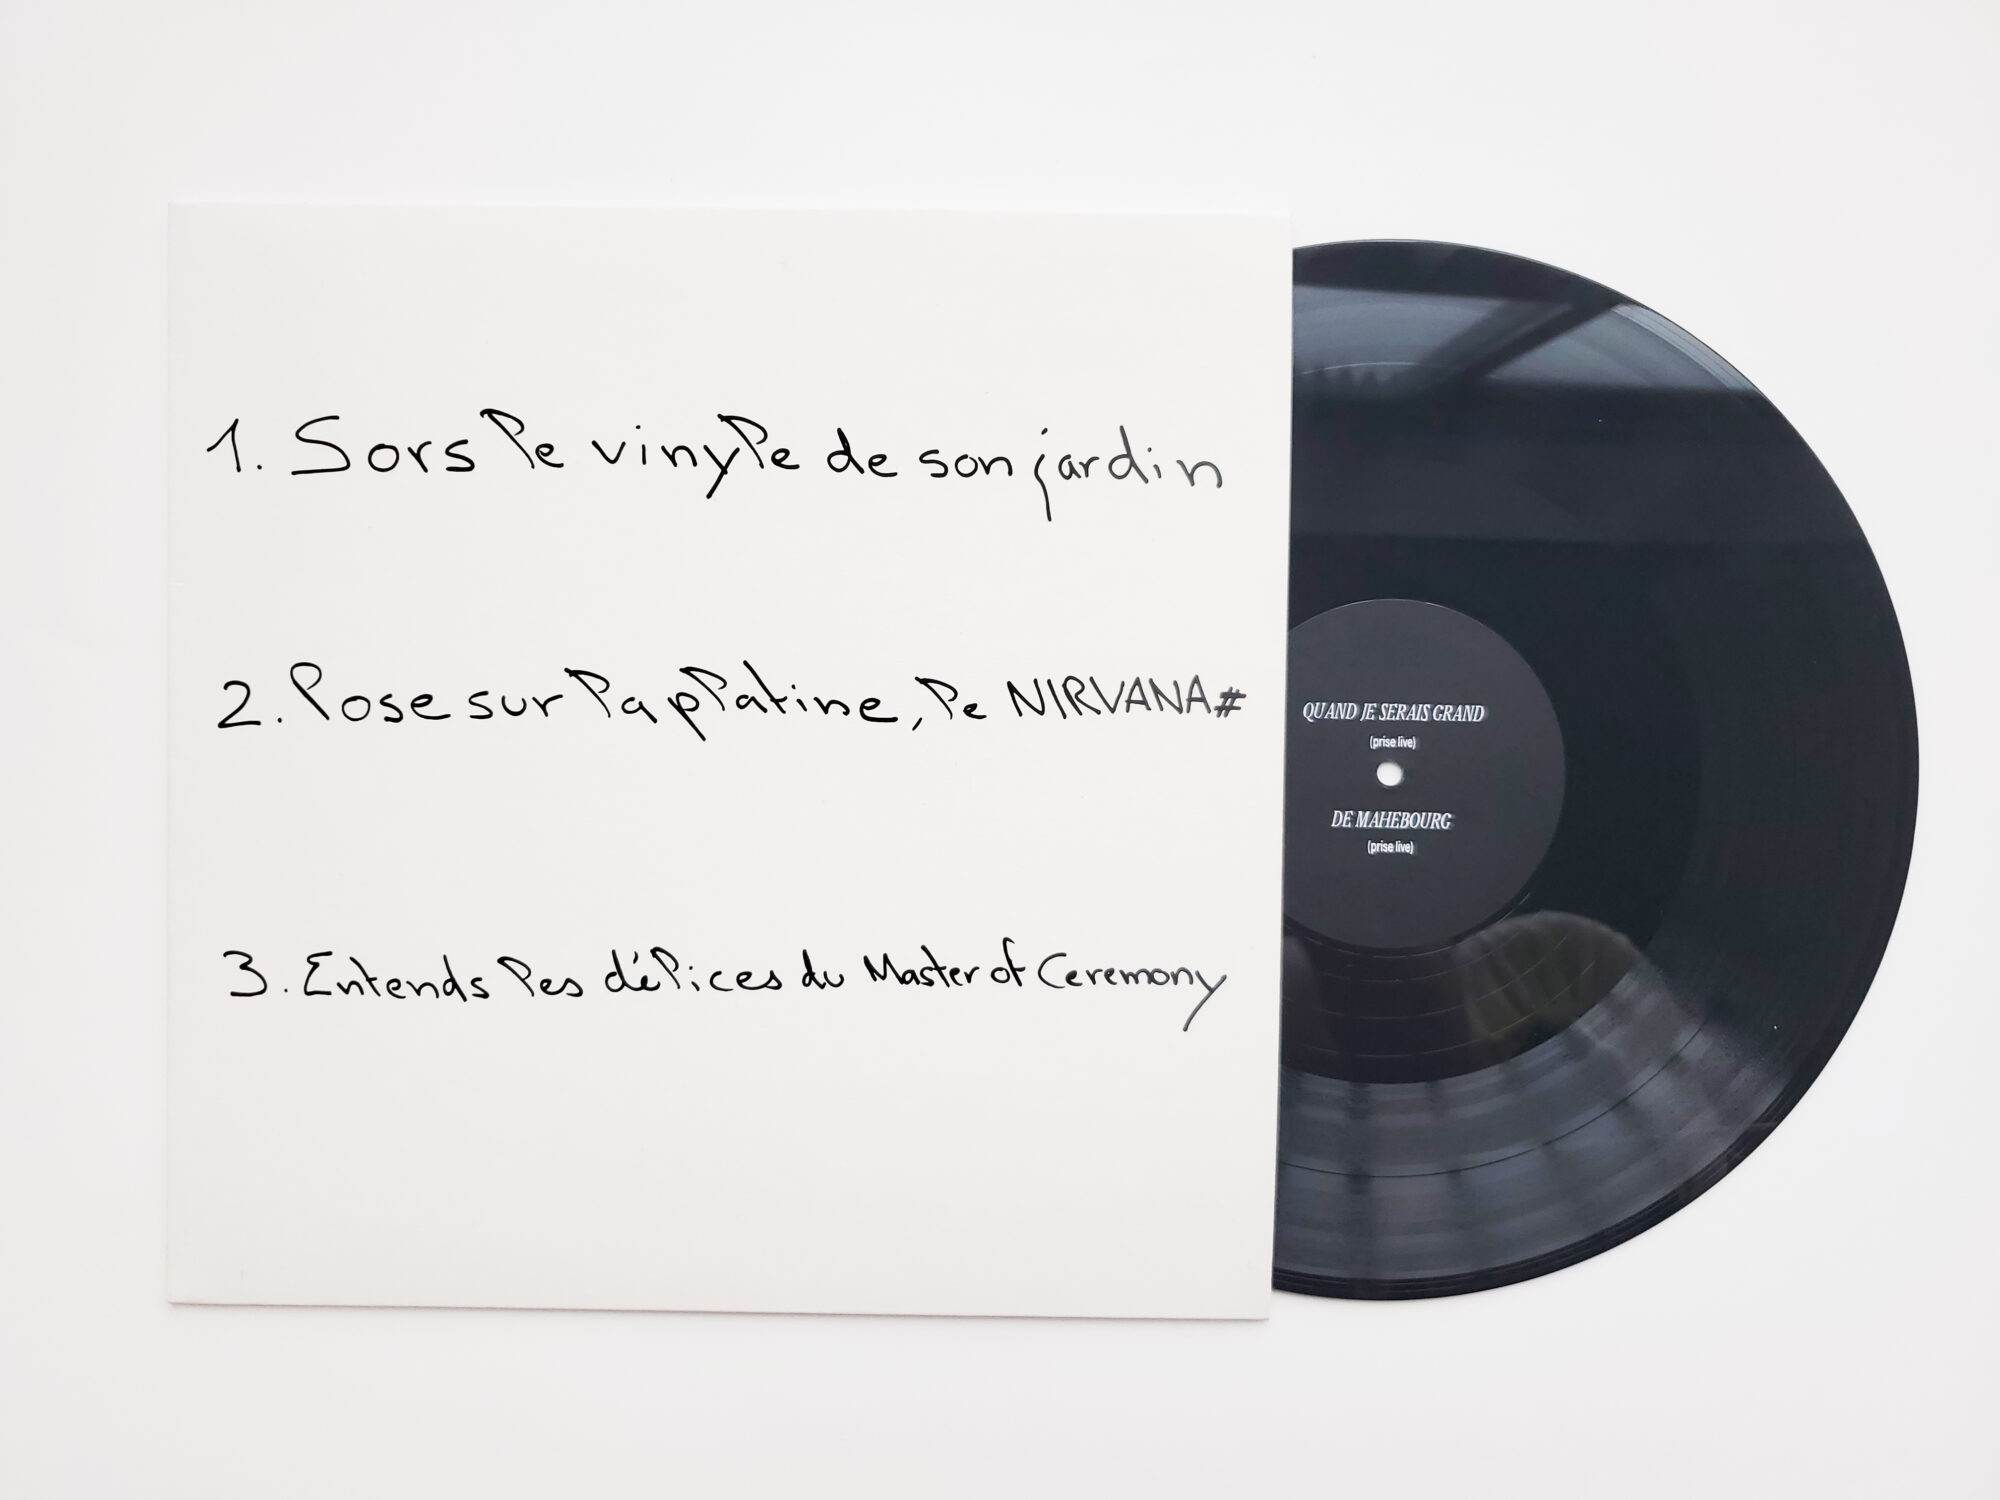 1. Sors le vinyle de son jardin
2. Pose sur la platine, le NIRVANA#
3. Entends les délices du Master of Ceremony
QUAND JE SERAIS GRAND
(prise live)
DE MAHEBOURG
(prise live)